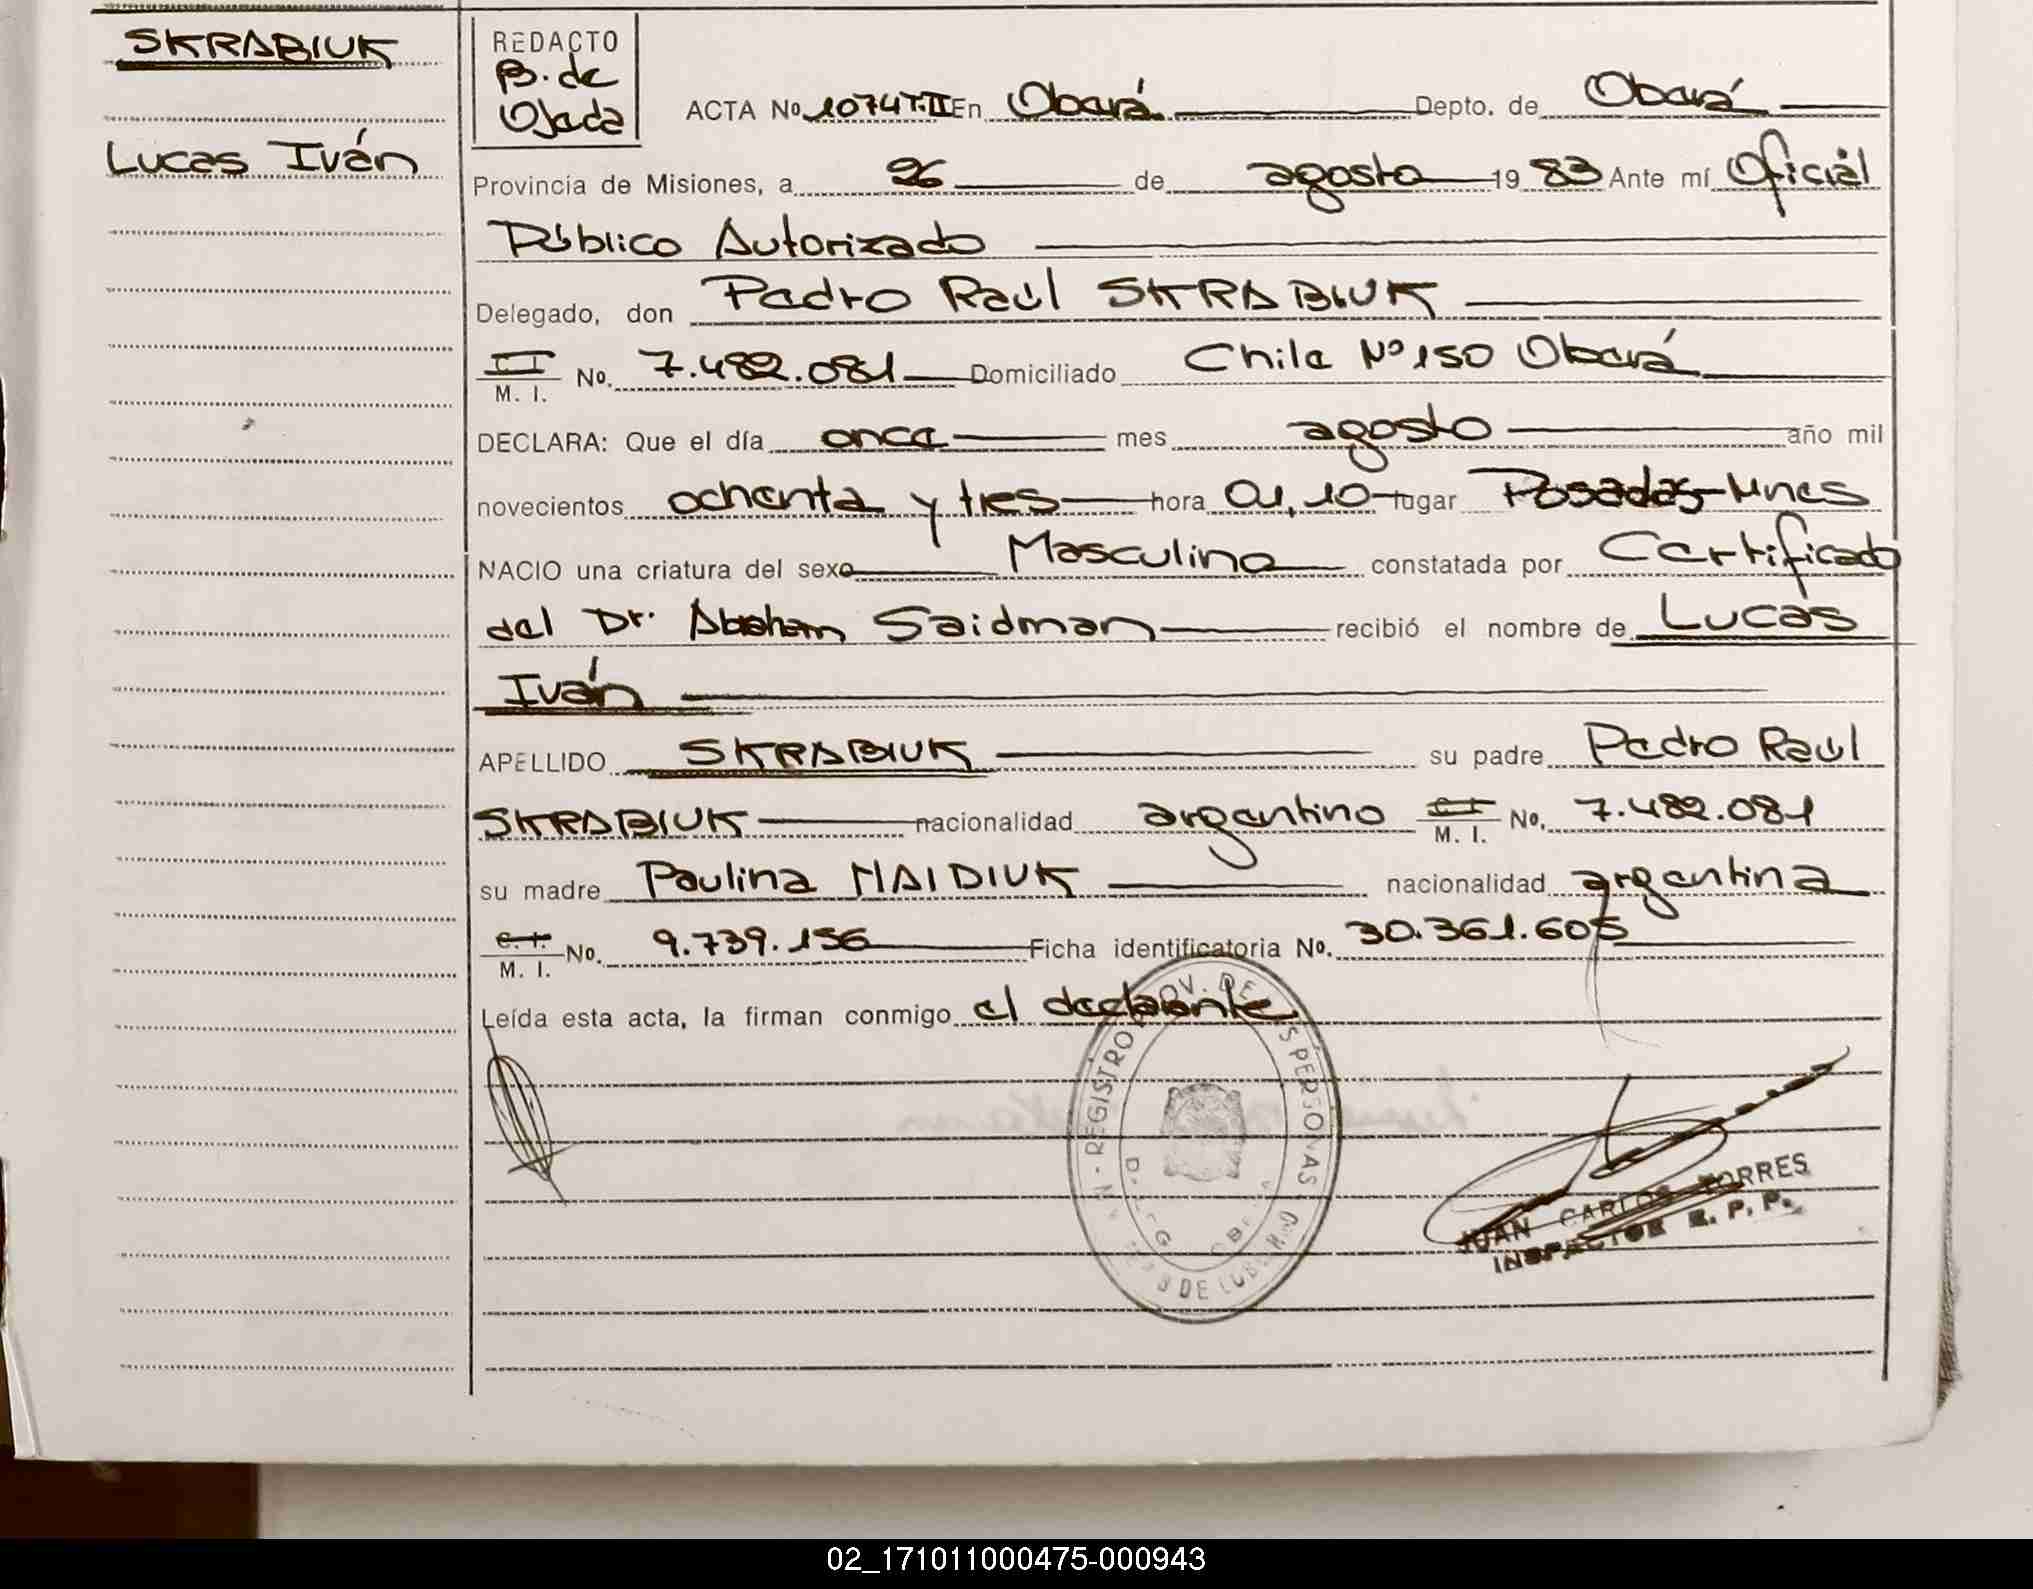 SKRABIUK
Lucas Iván
REDACTO
B. de
Ojeda
ACTA No. 1074 T.II En Oberá Depto. de Oberá
Provincia de Misiones, a 26 de agosto 1983 Ante mí Oficial
Público Autorizado
Delegado, don Pedro Raúl SKRABIUK
C I
M. I. No. 7.482.081 Domiciliado Chile Nº 150 Oberá
DECLARA: Que el día once mes agosto año mil
novecientos ochenta y tres hora 01,10 lugar Posadas-Mnes
NACIO una criatura del sexo Masculino constatada por Certificado
del Dr. Abraham Saidman recibió el nombre de Lucas
Iván
APELLIDO SKRABIUK su padre Pedro Raúl
SKRABIUK nacionalidad argentino C I M. I. No. 7.482.081
su madre Paulina NAIDIUK nacionalidad argentina
C. I. M. I. No. 9.739.156 Ficha identificatoria No. 30.361.605
Leída esta acta, la firman conmigo el declarante
REGISTRO PROV. DE PERSONAS
JUAN CARLOS TORRES
INSPECTOR R. P. P.
02_171011000475-000943